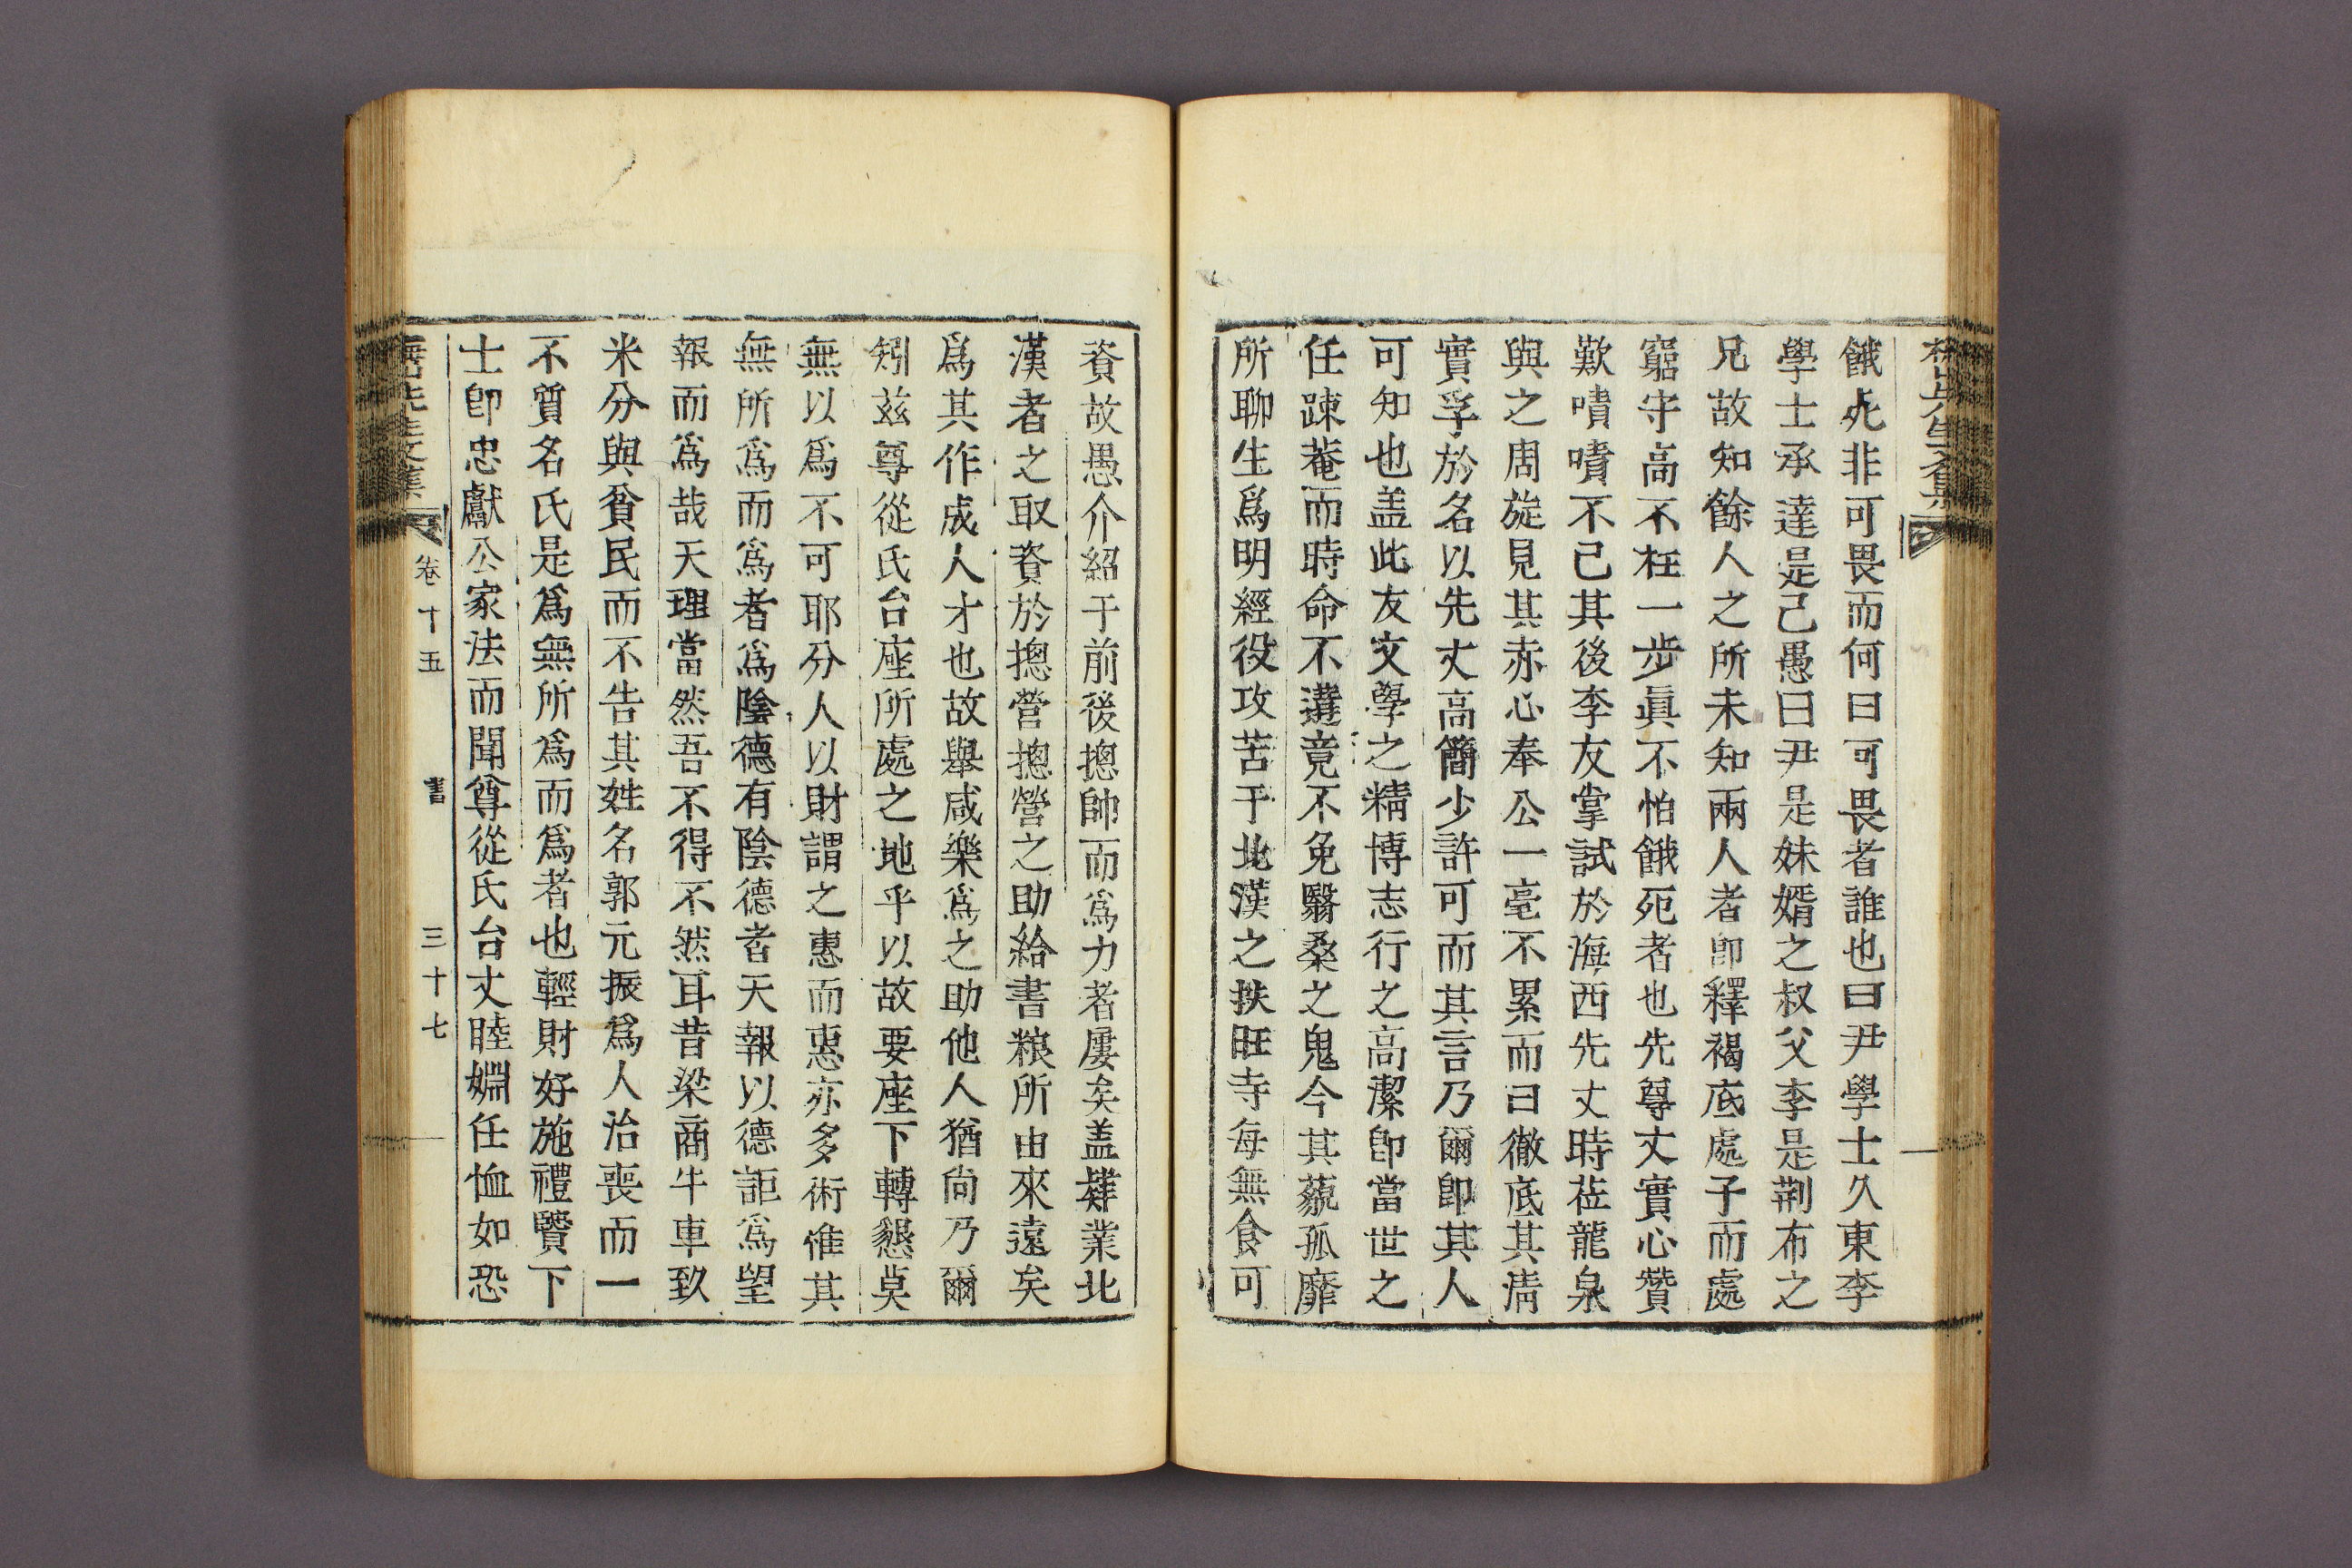 餓死非可畏而何曰可畏者誰也曰尹學士久東李
學士承達是己愚曰尹是妹婿之叔父李是荆布之
兄故知餘人之所未知兩人者卽釋褐底處子而處
窮守高不枉一步眞不怕餓死者也先尊丈實心贊
歎嘖嘖不已其後李友掌試於海西先丈時莅龍泉
與之周旋見其赤心奉公一毫不累而曰徹底其淸
實孚於名以先丈高簡少許可而其言乃爾卽其人
可知也盖此友文學之精博志行之高潔卽當世之
任踈菴而時命不遘竟不免翳桑之鬼今其藐孤靡
所聊生爲明經役攻苦于北漢之扶旺寺每無食可
資故愚介紹于前後摠帥而爲力者屢矣盖肄業北
漢者之取資於摠營摠營之助給書粮所由來遠矣
爲其作成人才也故擧咸樂爲之助他人猶尙乃爾
矧玆尊從氏台座所處之地乎以故要座下轉懇莫
無以爲不可耶分人以財謂之惠而惠亦多術惟其
無所爲而爲者爲陰德有陰德者天報以德詎爲望
報而爲哉天理當然吾不得不然耳昔梁商牛車致
米分與貧民而不告其姓名郭元振爲人治喪而一
不質名氏是爲無所爲而爲者也輕財好施禮賢下
士卽忠獻公家法而聞尊從氏台丈睦婣任恤如恐
先生文集 卷十五 書 三十七